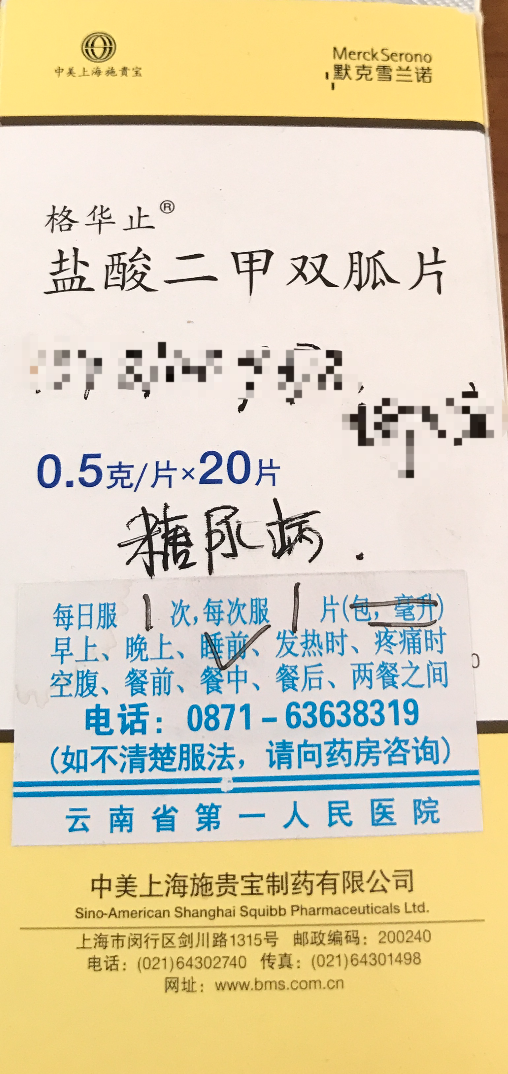 中美上海施贵宝
MerckSerono
默克雪兰诺
格华止®
盐酸二甲双胍片
0.5克/片×20片
糖尿病.
每日服 1 次,每次服 1 片(包,毫升)
早上、晚上、睡前、发热时、疼痛时
空腹、餐前、餐中、餐后、两餐之间
电话：0871-63638319
(如不清楚服法，请向药房咨询)
云南省第一人民医院
中美上海施贵宝制药有限公司
Sino-American Shanghai Squibb Pharmaceuticals Ltd.
上海市闵行区剑川路1315号 邮政编码：200240
电话：(021)64302740 传真：(021)64301498
网址：www.bms.com.cn